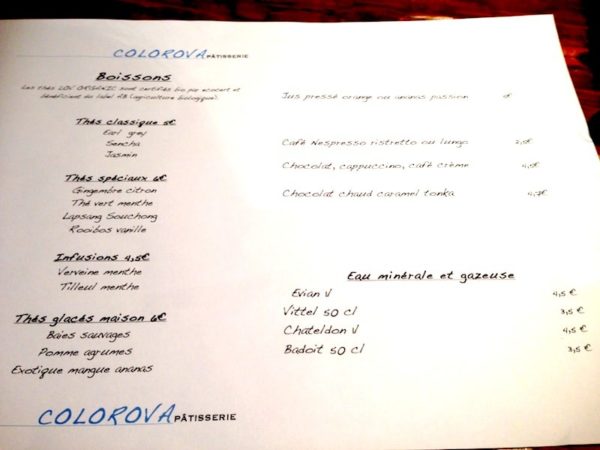 COLOROVA PÂTISSERIE
Boissons
Les thés LOV ORGANIC sont certifiés bio par ecocert et
bénéficient du label AB (agriculture biologique).
Thés classique 5€
Earl grey
Sencha
Jasmin
Thés spéciaux 6€
Gingembre citron
Thé vert menthe
Lapsang Souchong
Rooibos vanille
Infusions 4,5€
Verveine menthe
Tilleul menthe
Thés glacés maison 6€
Baies sauvages
Pomme agrumes
Exotique mangue ananas
COLOROVA PÂTISSERIE
Jus pressé orange ou ananas passion €
Café Nespresso ristretto ou lungo 2,5€
Chocolat, cappuccino, café crème 4,5€
Chocolat chaud caramel tonka
Eau minérale et gazeuse
Evian V 4,5 €
Vittel 50 cl 3,5 €
Chateldon V 4,5 €
Badoit 50 cl 3,5 €